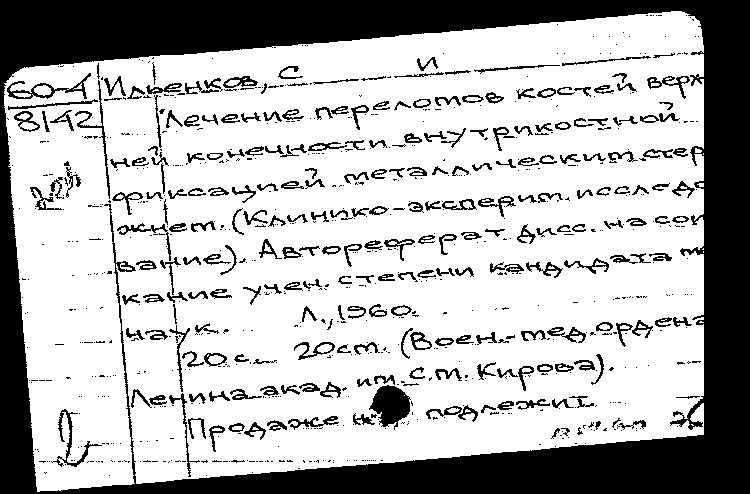 60-4 Ильенков, С И
8142 Лечение переломов костей верх
ней конечности внутрикостной
фиксацией металлическим стер
жнем. (Клинико-эксперим. исследо
вание). Автореферат дисс. на сои
кание учен. степени кандидата ме
наук. Л., 1960.
20 с. 20 см. (Воен.-мед. ордена
Ленина акад. им. С.М. Кирова).
Продаже подлежит
2